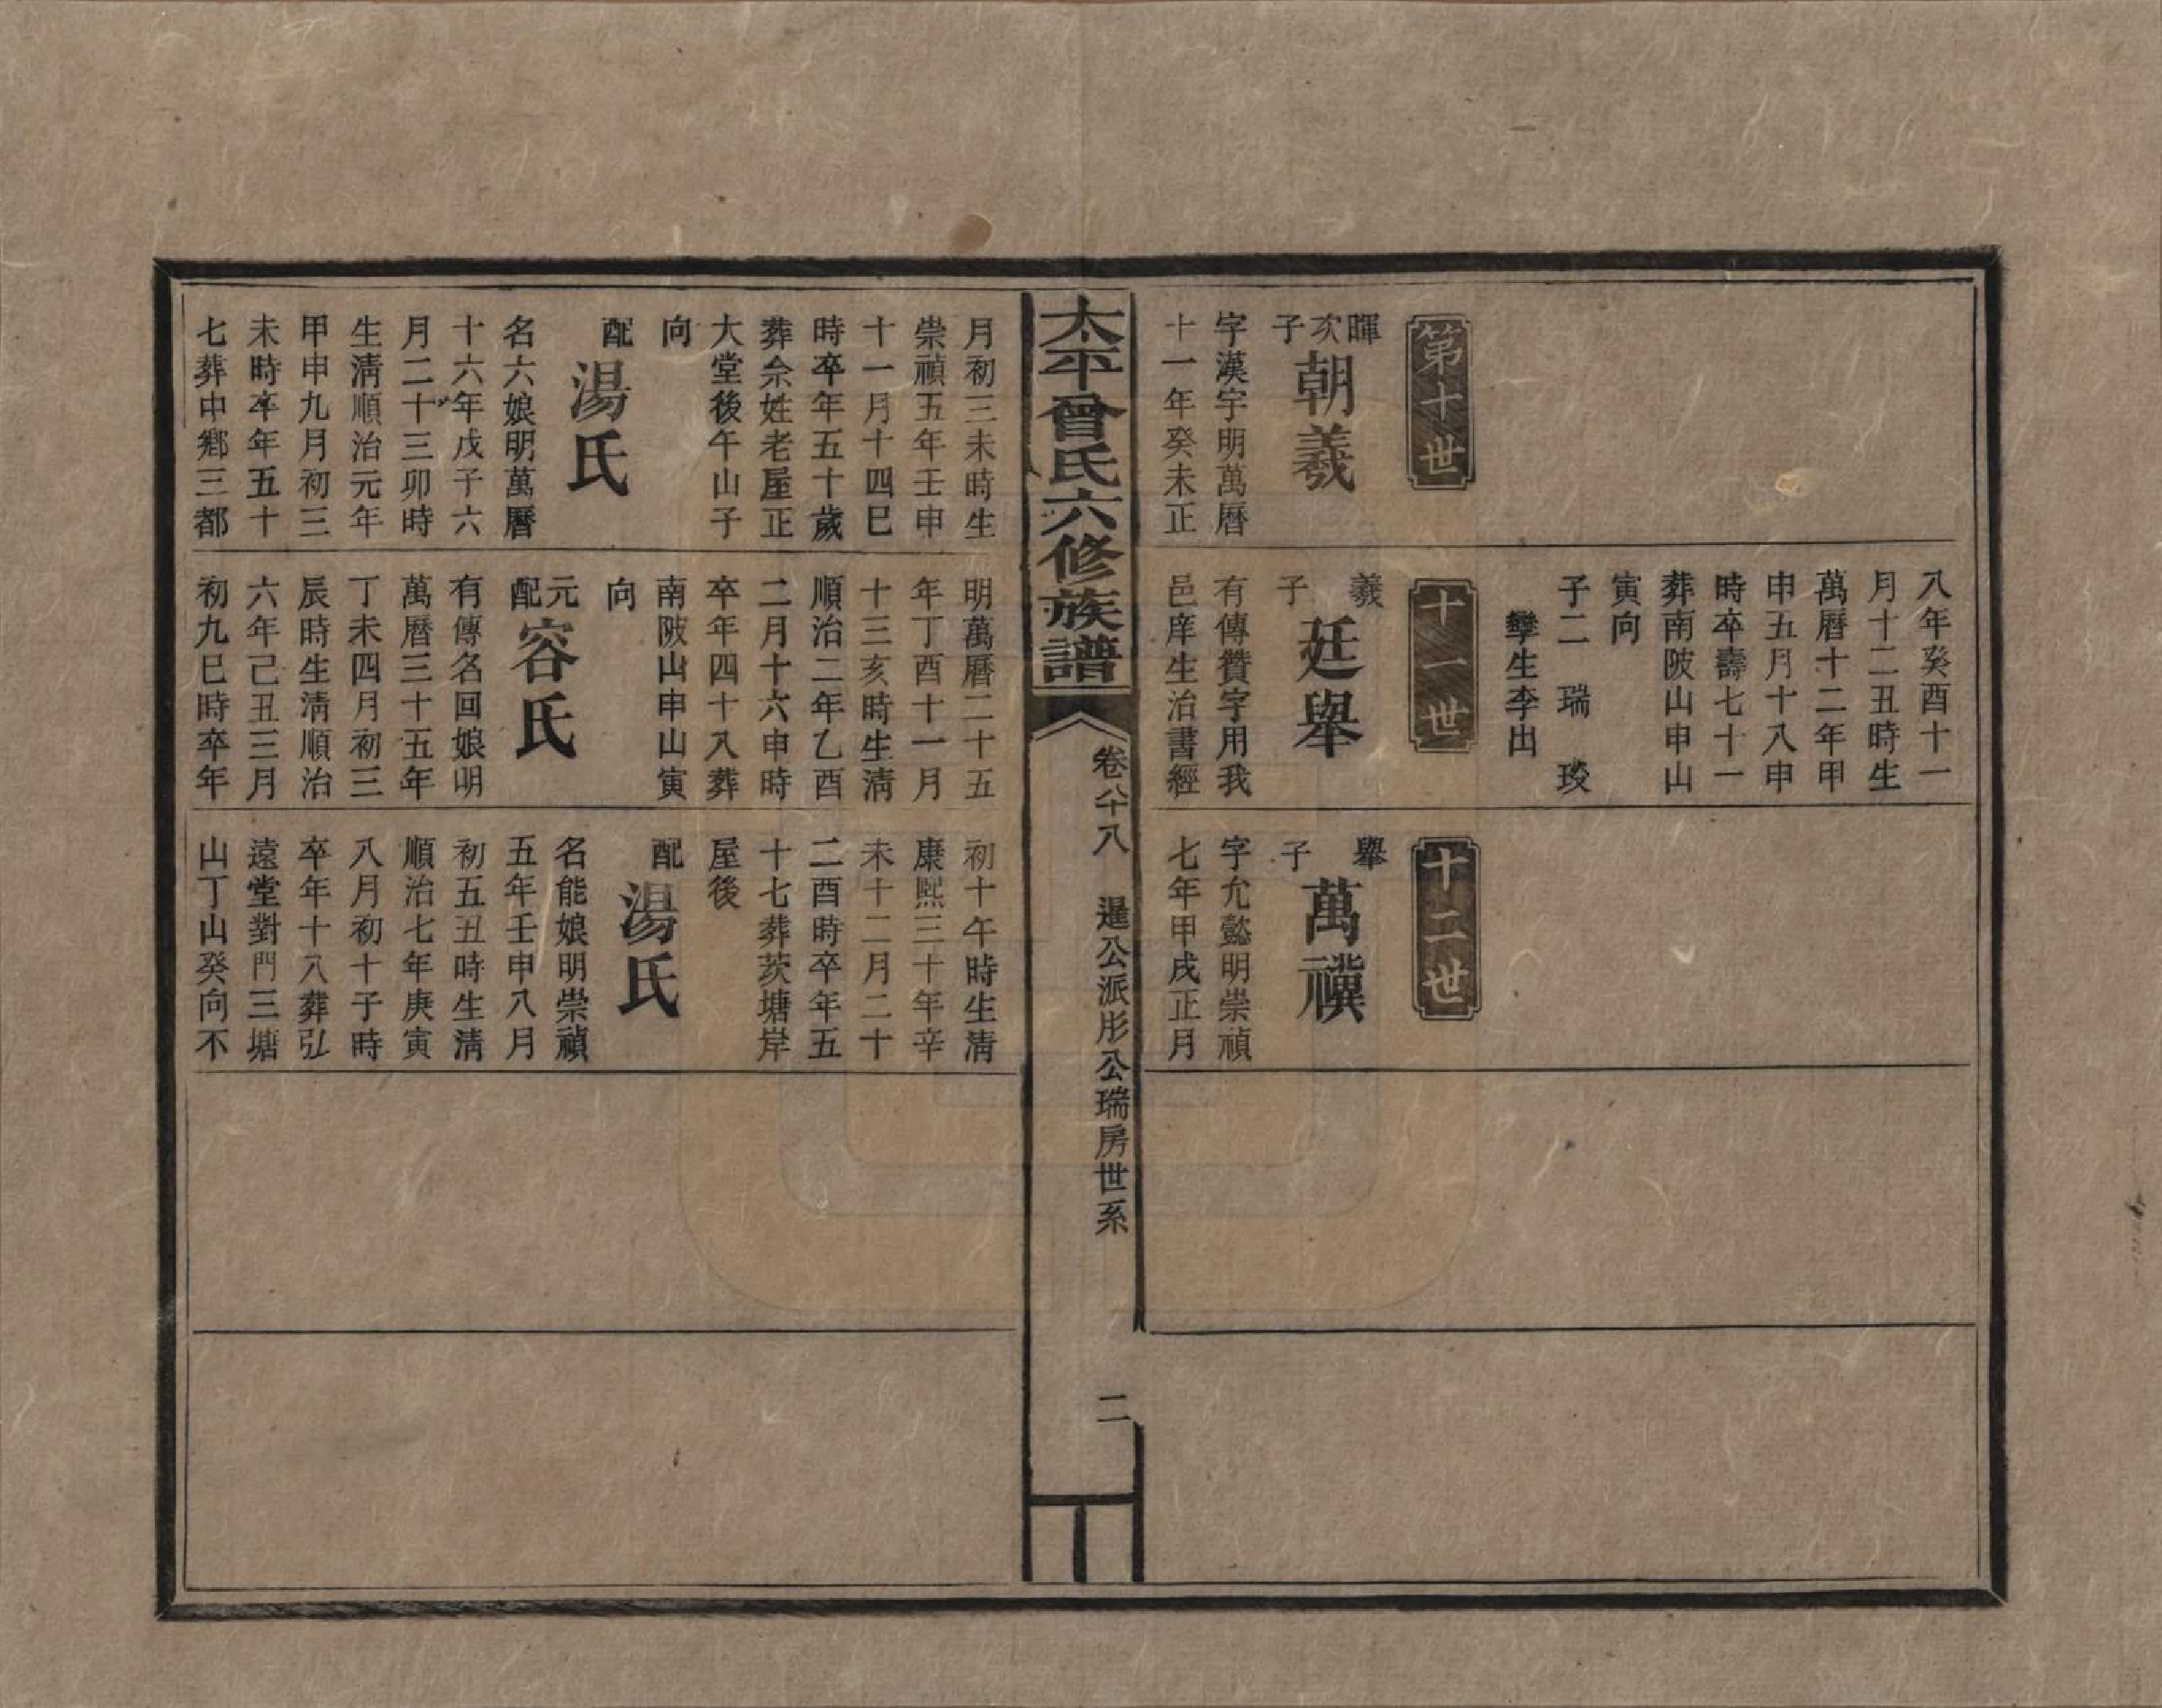 第十世
暉次子
朝羲
字漢宇明萬曆
十一年癸未正
八年癸酉十一
月十二丑時生
萬曆十二年甲
申五月十八申
時卒壽七十一
葬南陂山申山
寅向
子二 瑞 琰
孿生李出
十一世
羲子
廷舉
有傳贊字用我
邑庠生治書經
十二世
舉子
萬禩
字允懿明崇禎
七年甲戌正月
太平曾氏六修族譜
卷六十八 暹公派彤公瑞房世系
二
月初三未時生
崇禎五年壬申
十一月十四巳
時卒年五十歲
葬余姓老屋正
大堂後午山子
向
配湯氏
名六娘明萬曆
十六年戊子六
月二十三卯時
生清順治元年
甲申九月初三
未時卒年五十
七葬中鄉三都
明萬曆二十五
年丁酉十一月
十三亥時生清
順治二年乙酉
二月十六申時
卒年四十八葬
南陂山申山寅
向
元配容氏
有傳名回娘明
萬曆三十五年
丁未四月初三
辰時生清順治
六年己丑三月
初九巳時卒年
初十午時生清
康熙三十年辛
未十二月二十
二酉時卒年五
十七葬茨塘岸
屋後
配湯氏
名能娘明崇禎
五年壬申八月
初五丑時生清
順治七年庚寅
八月初十子時
卒年十八葬弘
遠堂對門三塘
山丁山癸向不